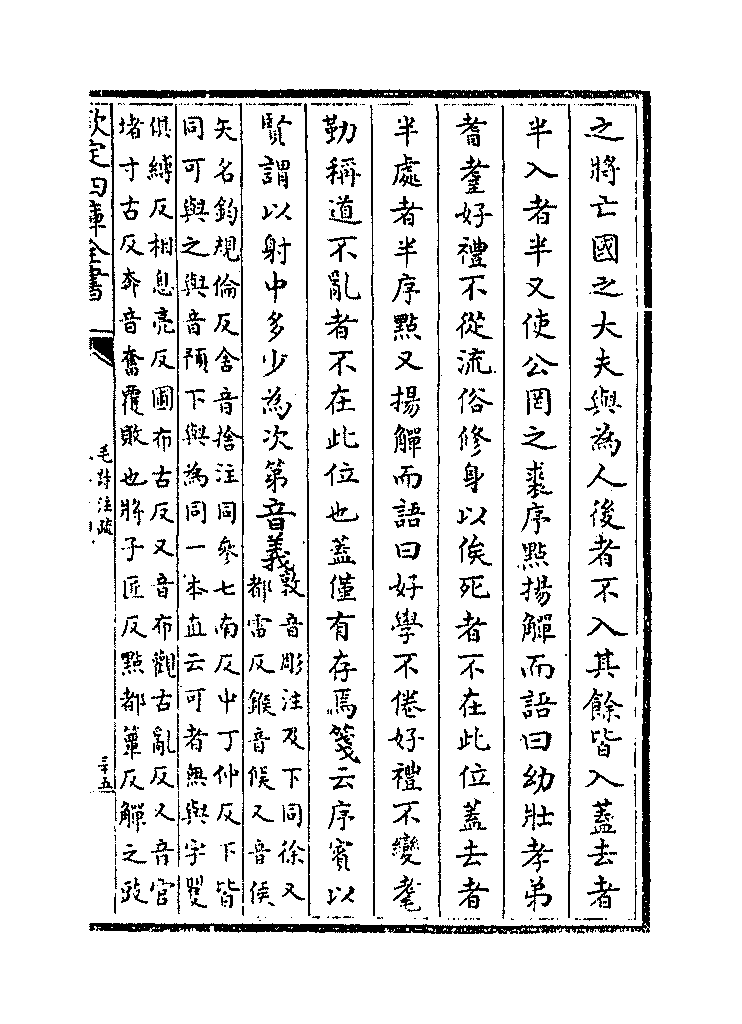 之將亡國之大夫與為人後者不入其餘皆入蓋去者
半入者半又使公罔之裘序點揚觶而語曰幼壯孝弟
耆耋好禮不從流俗修身以俟死者不在此位蓋去者
半處者半序點又揚觶而語曰好學不倦好禮不變耄
勤稱道不亂者不在此位也蓋僅有存焉箋云序賓以
賢謂以射中多少為次第音義敦音彫注及下同徐又
都雷反鍭音侯又音候
矢名鈞規倫反舍音捨注同參七南反中丁仲反下皆
同可與之與音預下與為同一本直云可者無與字矍
俱縛反相息亮反圃布古反又音布觀古亂反又音官
堵寸古反奔音奮覆敗也將子匠反點都簟反觶之豉
欽定四庫全書
毛詩注疏
三十五